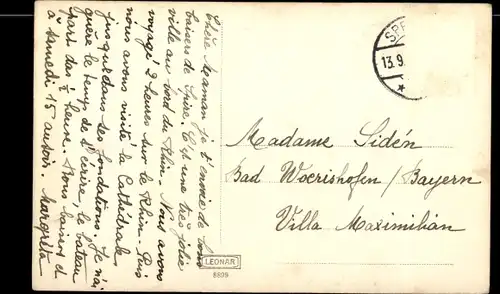 Chère Maman je t'envoie de bons
baisers de Spire. C'est une très jolie
ville au bord du Rhin. Nous avons
voyagé 2 heures sur le Rhin. Puis
nous avons visité la Cathédrale
jusque dans ses fondations. Je n'ai
guère le temps de t'écrire, le bateau
part dans ½ heure. Bons baisers et
à samedi 15 au soir. Margreta
SPE
13.9.
Madame Sidén
Bad Woerishofen / Bayern
Villa Maximilian
LEONAR
8899